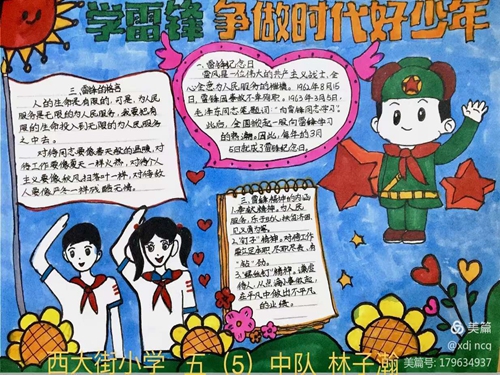 学雷锋 争做时代好少年
二、雷锋的格言
人的生命是有限的,可是,为人民
服务是无限的,我要把有
限的生命投入到无限的为人民服务
之中去。
对待同志要像春天般的温暖,对
待工作要像夏天一样火热,对待个人
主义要像秋风扫落叶一样,对待敌
人要像严冬一样残酷无情。
一、雷锋纪念日
雷锋是一位伟大的共产主义战士,全
心全意为人民服务的楷模。1962年8月15
日,雷锋因事故不幸殉职。1963年3月5日,
毛主席同志笔题词:“向雷锋同志学习”。
此后,全国掀起一股向雷锋学习
的热潮。因此,每年的3月
5日就成了雷锋纪念日。
三、雷锋精神的内涵
1.奉献精神。为人民
服务,乐于助人,扶贫济困,
见义勇为。
2.“钉子”精神。对待工作
要立足本职,尽职尽责,有
“钻”劲。
3.“螺丝钉”精神。谦虚
待人,从点滴小事做起,
在平凡中做出不平凡
的业绩。
西大街小学 五(5)中队 林子瀚
美篇
@xdj ncq
美篇号: 179634937